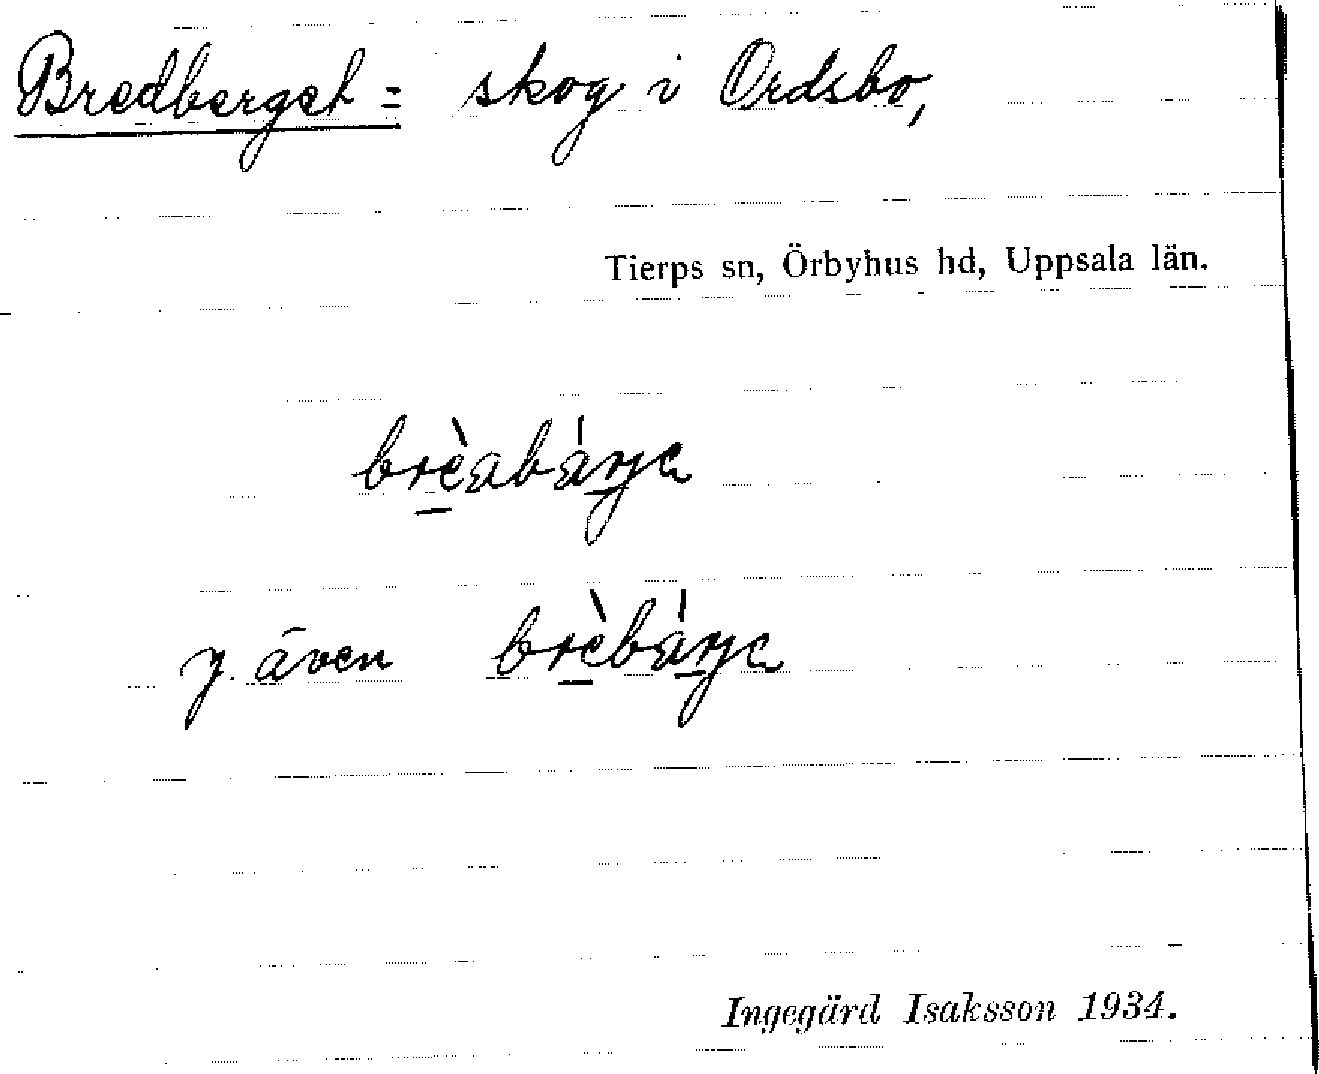 Bredberget = skog i Ordsbo,
Tierps sn, Örbyhus hd, Uppsala län.
brèabárje
y. även brèbárje
Ingegärd Isaksson 1934.